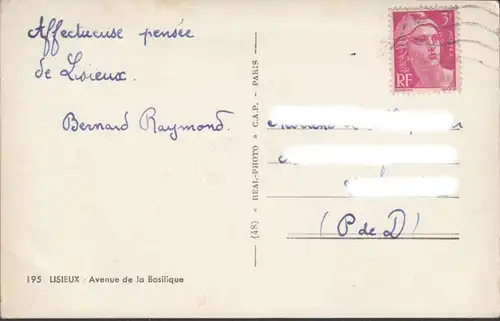 Affectueuse pensée
de Lisieux.
Bernard Raymond.
195 LISIEUX - Avenue de la Basilique
(48) « REAL-PHOTO » C.A.P. - PARIS
3F
RF
(P de D)